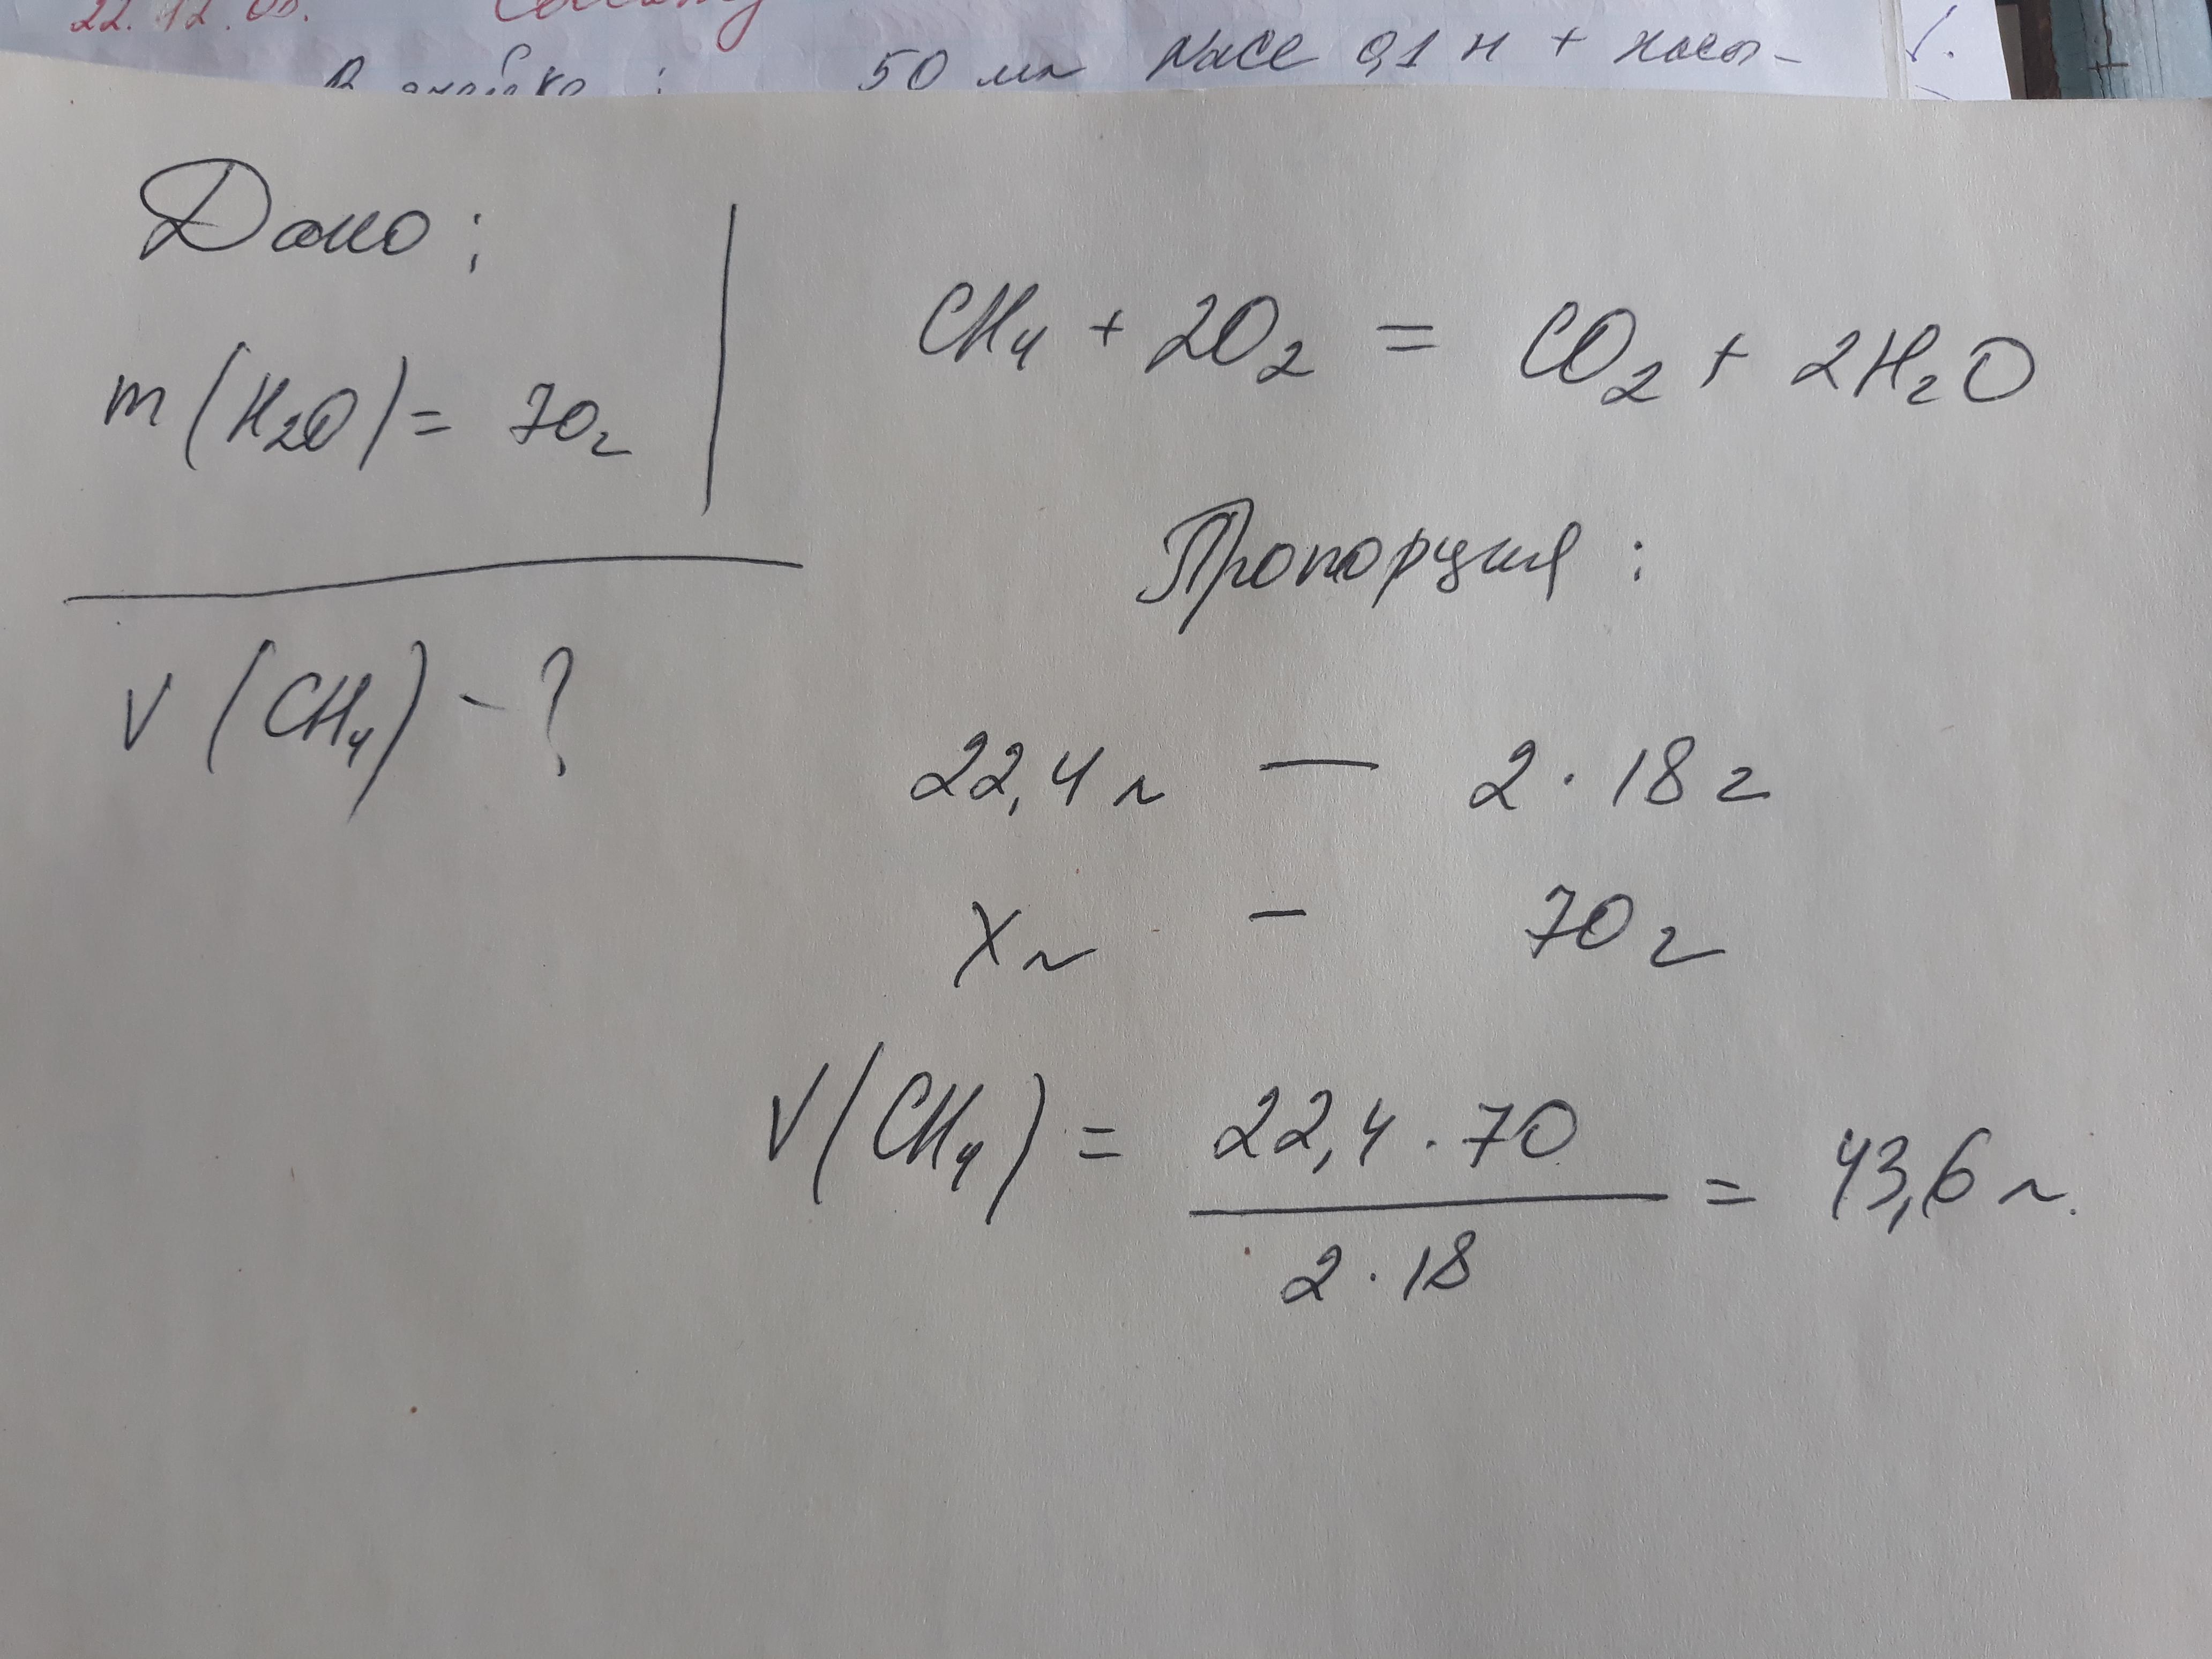 22.12.0
50 мл NaCl 0,1 н + насы-
Дано:
m(H₂O) = 70г
V(CH₄) - ?
CH₄ + 2O₂ = CO₂ + 2H₂O
Пропорция:
22,4 л — 2 · 18 г
X л - 70 г
V(CH₄) = 22,4 · 70 = 43,6 л.
2 · 18